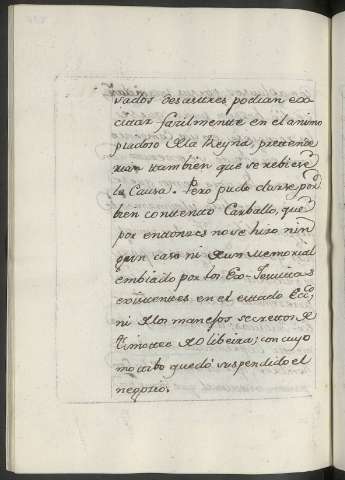 sados desastres podian ex-
citar facilmente en el animo
piadoso de la Reyna, pretende
rian tambien que se rebiese
la Causa. Pero pudo darse por
bien contento Carballo, que
por entonces no se hizo nin
gun caso ni de un Memorial
embiado por los Ex-Jesuitas
existentes en el estado Ecco,
ni de los manejos secretos de
timoteo de Olibeira; con cuyo
motibo quedó suspendido el
negocio.